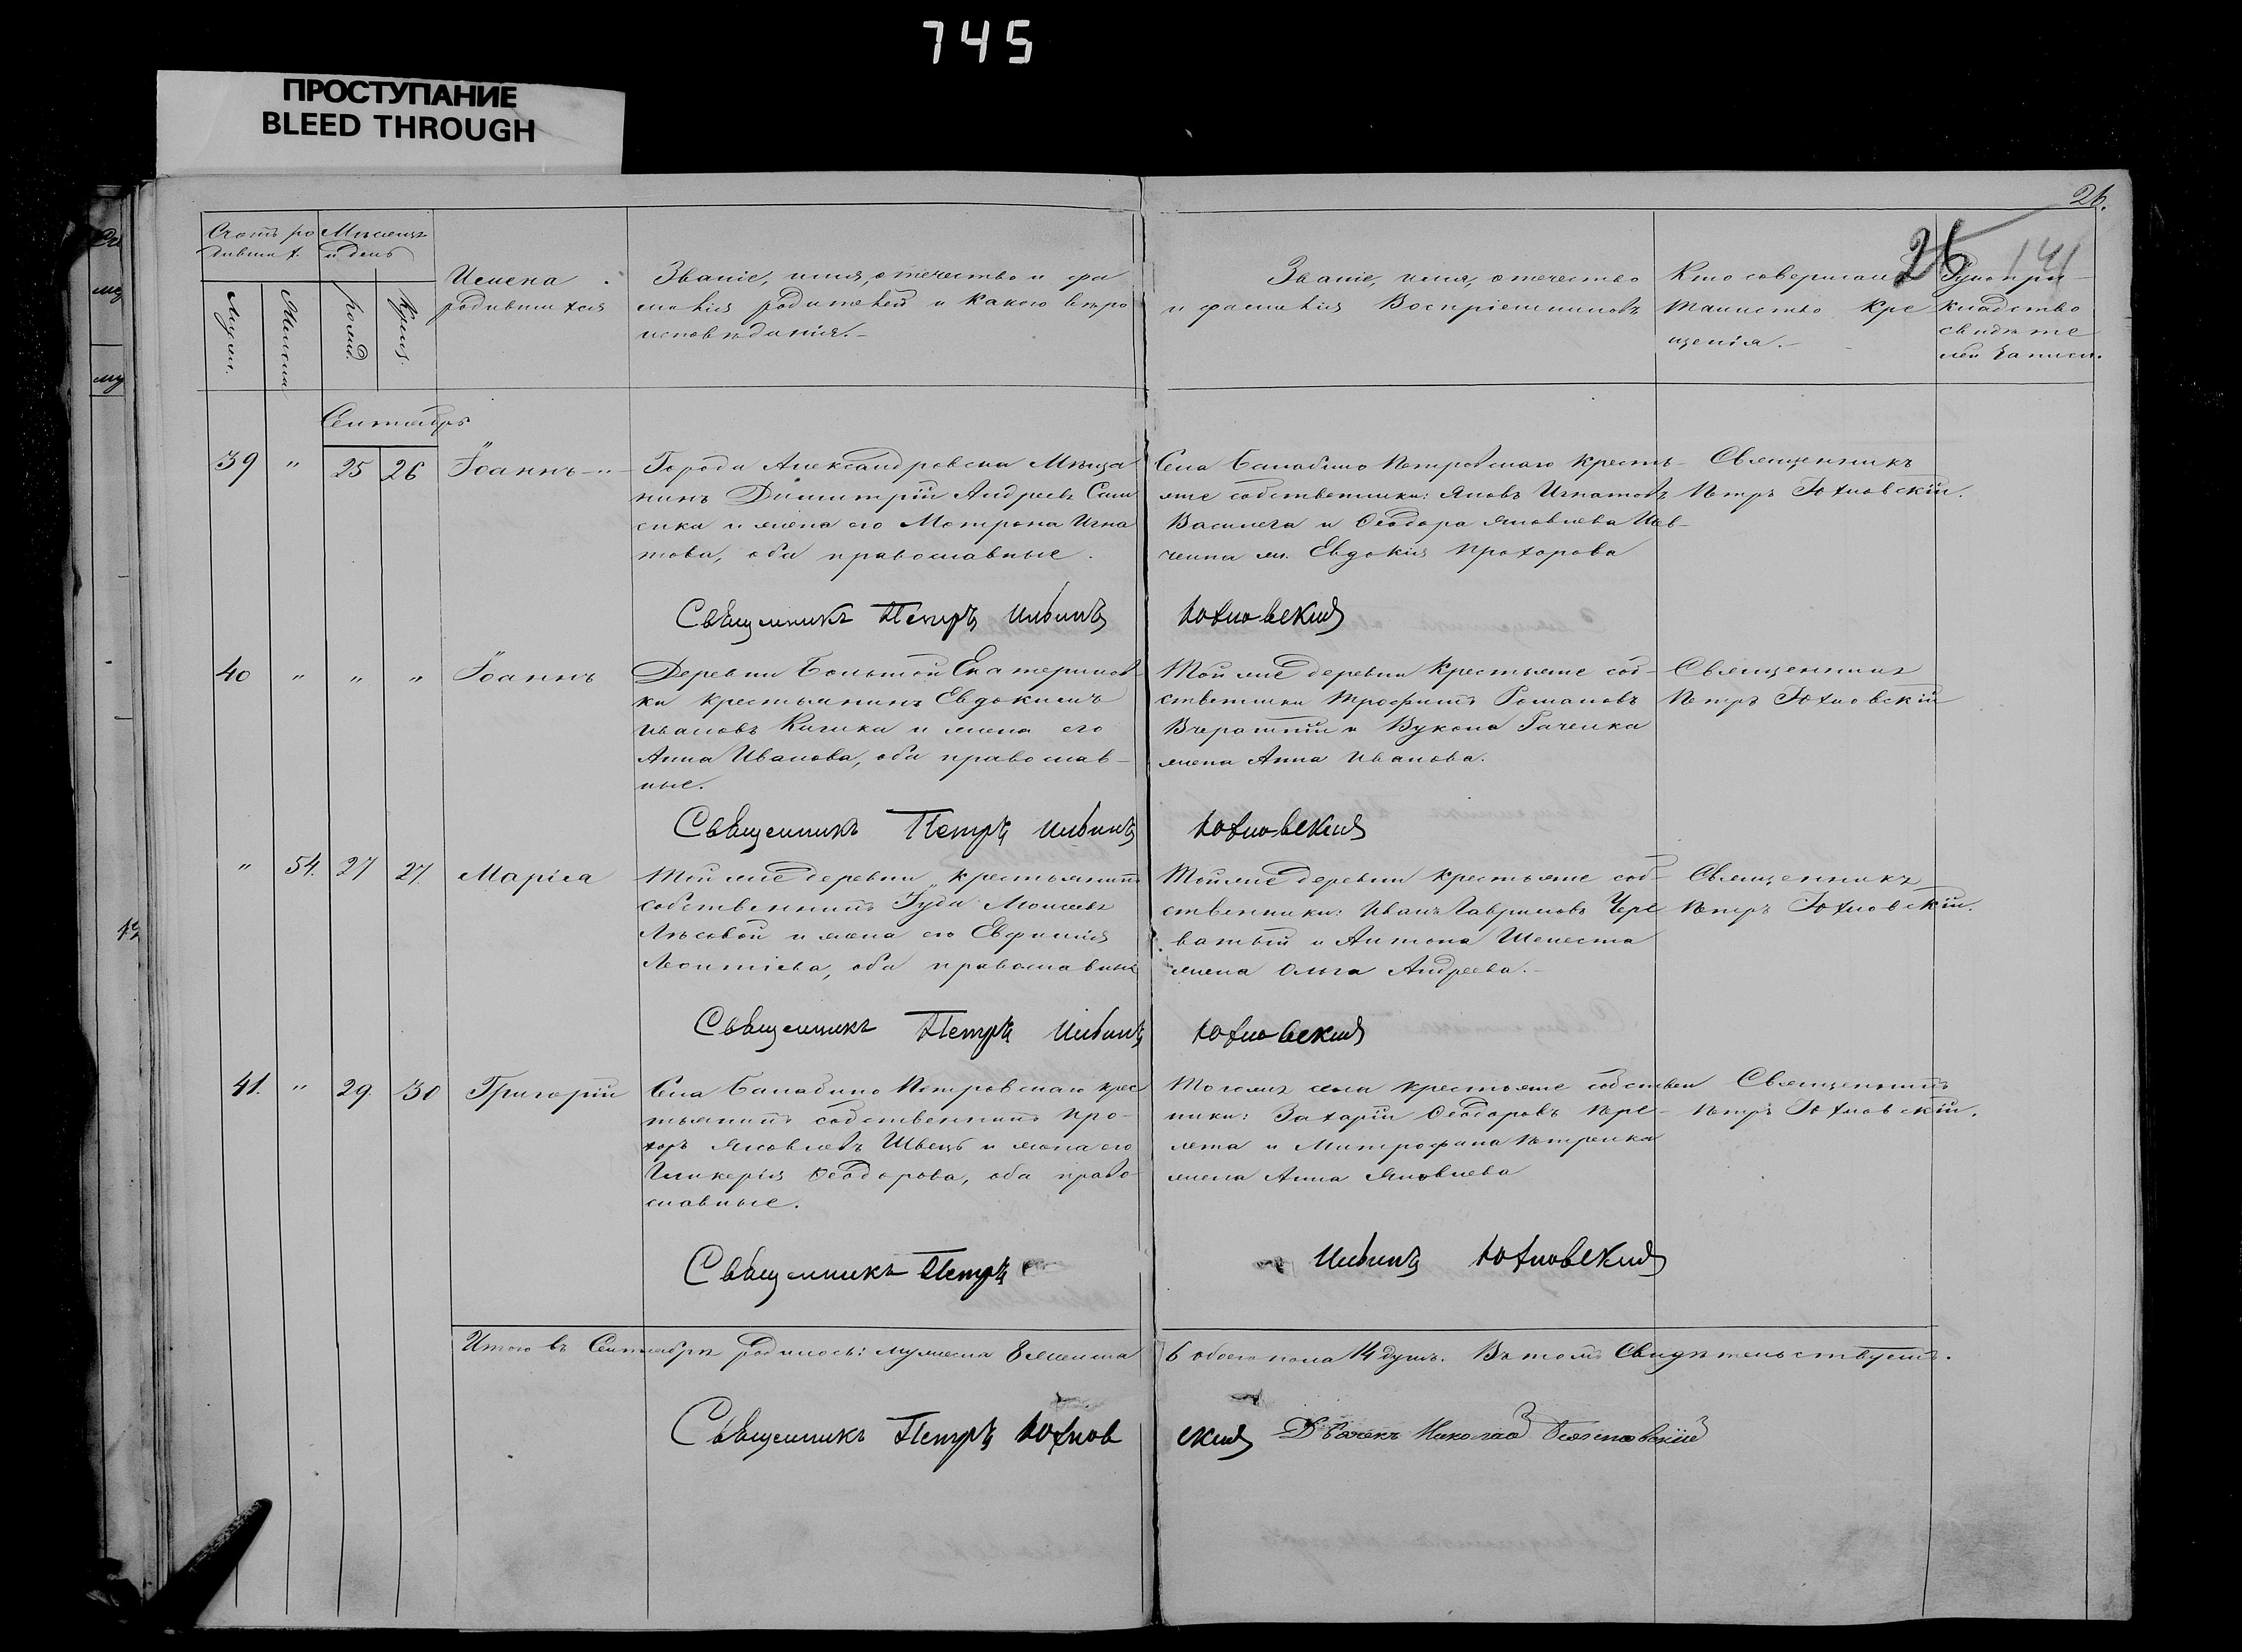 745
ПРОСТУПАНИЕ
BLEED THROUGH
26.
26 141
Счетъ ро
дивших.
Мѣсяцъ
и день
Мужеск.
Женска
рожд.
Крещ.
Имена
родившихся
Званіе, имя, отечество и фа
милія родителей и какого вѣро
исповѣданія.
Званіе, имя, отечество
и фамилія Воспріемниковъ
Кто совершалъ
таинство Кре
щенія.
Рукопри-
кладство
свидѣте
лей записи.
Сентябрь
39 " 25 26 Іоаннъ
Города Александровска Мѣща
нинъ Димитрій Андреевъ
и жена его Матрона Игна
това, оба православные.
Села Балабино Петровскаго кресть-
яне собственники: Яковъ Игнатовъ
Василега и Ѳеодора Яковлева Шев-
ченка ж. Евдокія Прохорова
Священникъ
Петръ Юхновскій.
Священникъ Петръ Юхновский
40 " " " Іоаннъ
Деревни Большой Екатеринов
ки крестьянинъ Евдокимъ
Ивановъ и жена его
Анна Иванова, оба православ-
ные.
Той же деревни крестьяне соб-
ственники Трофимъ Романовъ
и
жена Анна Иванова.
Священникъ
Петръ Юхновскій
Священникъ Петръ Юхновский
" 54. 27 27. Маріа
Той же деревни крестьянинъ
собственникъ Іуда Моисеевъ
Лѣсовой и жена его Евфимія
Леонтіева, оба православные
Той же деревни крестьяне соб-
ственники: Иванъ Гавриловъ Чер
ватый и Антона Шепеста
жена Ольга Андреева.
Священникъ
Петръ Юхновскій.
Священникъ Петръ Юхновский
41. " 29. 30 Григорій
Села Балабино Петровскаго крес
тьянинъ собственникъ Про-
хоръ Яковлевъ Швецъ и жена его
Гликерія Ѳеодорова, оба право-
славные.
Того же села крестьяне собствен
ники: Захарій Ѳеодоровъ Пере-
лета и Митрофана Петренка
жена Анна Яковлева
Священникъ
Петръ Юхновскій.
Священникъ Петръ Юхновский
Итого въ Сентябрѣ родилось: мужеска 8 женска 6 обоего пола 14 душъ. Въ томъ Свидѣтельствуемъ.
Священникъ Петръ Юхновский Дьячекъ Николай